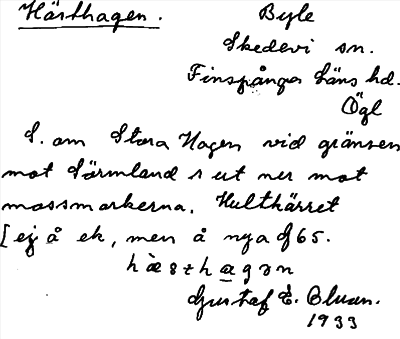 Hästhagen.
Byle
Skedevi sn.
Finspånga läns hd.
Ögl
S. om Stora Hagen vid gränsen
mot Sörmland o ut ner mot
mossmarkerna. Hultkärret
[ej å ek, men å nya gf 65.
hàsthagən
Gustaf E. Bluan.
1933